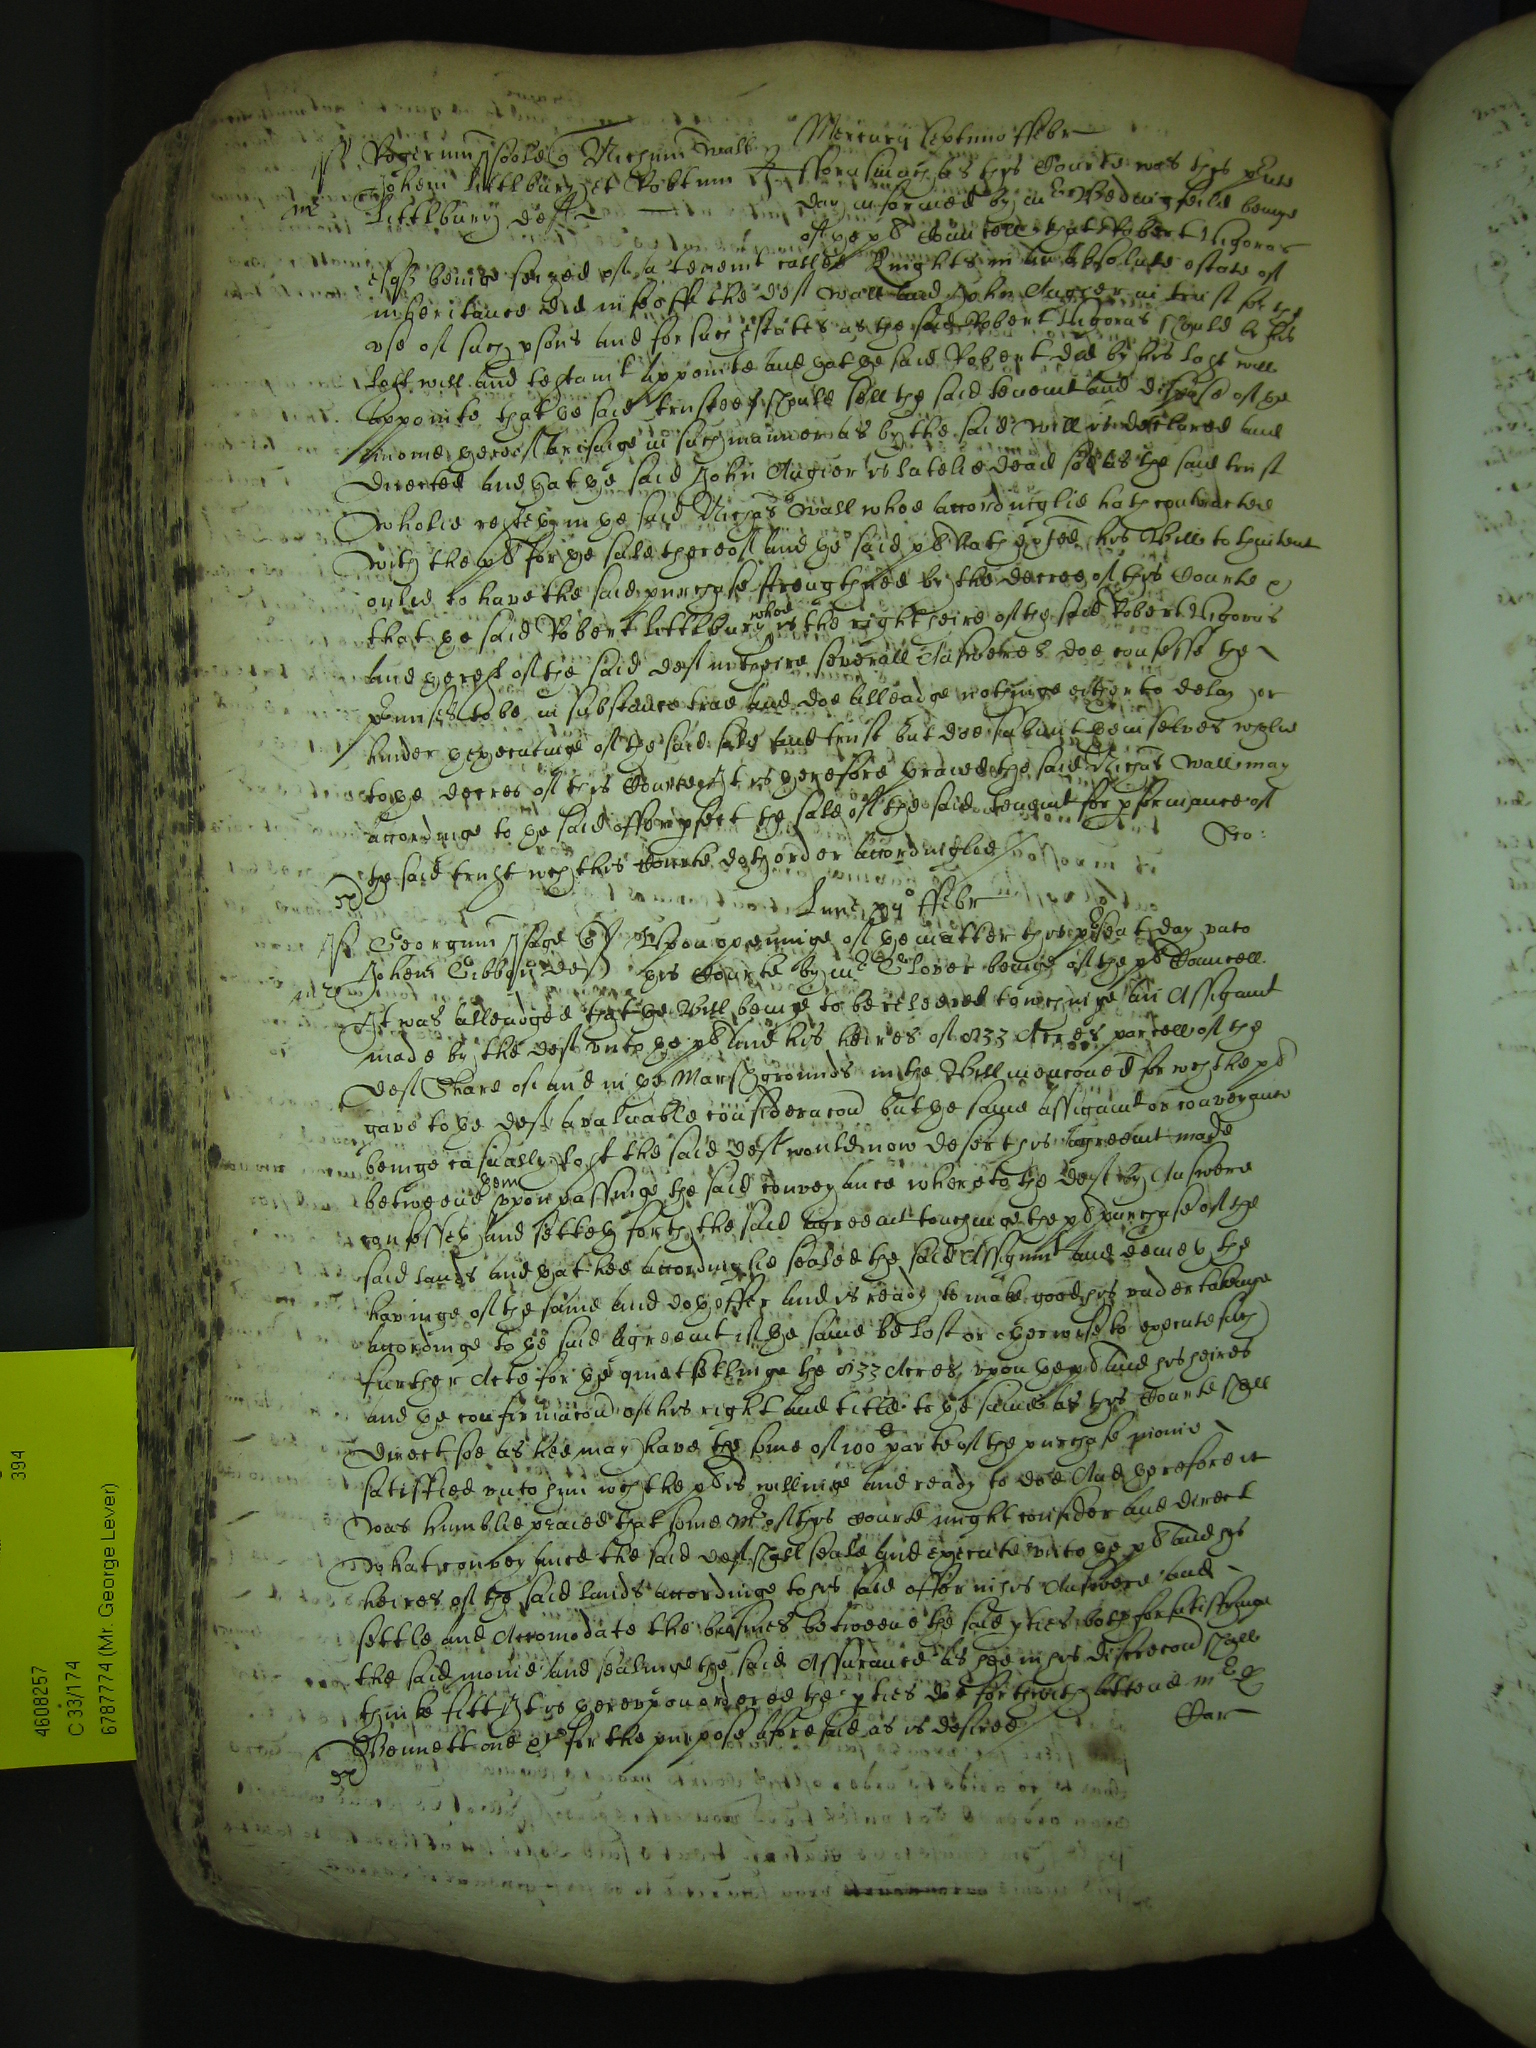 Mercurij septimo ffebr
Rogerum Poole q Nichum Wall
Johem Littlbury et Robtum
Littlbury def
fforasmuch as this Courte was this pñte
day informed by mr Bedingfeild beinge
of ye pl Councell that Robert Nigorus
esqr beinge seized of a tenemt called Knights in an absolute estate of
inheritance did infeoffe the def Wall and John Augier in trust for the
vse of such psons and for such estates as the said Robert Nigorus should by his
last will and testamt appointe and yat ye said Robert did by his last will
appointe that ye said trustees should sell the said tenemt and dispose of ye
income yereof arisinge in such manner as by the said will is declared and
directed And yat ye said John Augier is latelie dead soe as the said trust
wholie resteth in ye said Nichas Wall whoe accordinglie hath contracted
with the pl for ye sale thereof and ye said pl hath exhted his Bill to thintent
onlie to have the said purchase strengthned by the decree of this Courte
that ye said Robert Littlbury whoe is the right heire of the said Robert Nigorus
and ye rest of the said def in theire severall Answeres doe confesse the
pmisses to be in substance true and doe alleadge nothinge either to delay or
hinder ye executinge of the said sale and trust but doe submit themselves wholie
to ye decree of this Courte It is yerefore praied the said Nichas Wall may
accordinge to ye said offer pfect the sale of the said tenemt for pformance of
the said trust wch this Courte doth order accordinglie
Lune xijo ffebr
Georgium Page q
Johem Gibbon def
Upon openinge of ye matter this psent day vnto
this Courte by mr Glover beinge of the pl Councell
It was alleadged that ye Bill beinge to be releeved touchinge an Assignmt
made by the def vnto ye pl and his heires of 0133 Acres parcell of the
def share of and in ye Marsh grounds in the Bill mencioned for wch the pl
gave to ye def a valuable consideracon but ye same assignmt or conveyance
beinge casually lost the said def would now desert this agreemt made
betweene them vpon passinge the said conveyance whereto the def by Answere
confesseth and setteth forth the said agreemt touchinge the pl purchase of the
said lands and yat hee accordinglie sealed the said Assignmt and denieth the
havinge of the same and doth offer and is ready to make good his vndertakinge
accordinge to ye said Agreemt if ye same be lost or otherwise to execute such
further Acte for ye quiet setlinge the 0133 Acres vpon ye pl and his heires
and ye confirmacon of his right and title to ye same as this Courte shall
direct soe as hee may have the some of 100l parte of the purchase monie
satisfied vnto him wch the pl is willinge and ready to doe And yerefore it
was humblie praied that some Mr of this Courte might consider and direct
what conveyance the said def shall seale and execute vnto ye pl and his
heires of the said lands accordinge to his said offer in his Answere and
settle and Accomodate the busines betweene the said pties both for satisfyinge
the said monie and sealinge the said Assurance as hee in his discrecon shall
thinke fitt It is yerevpon ordered the pties doe forthwith attend mr
Bennett one &c for the purpose aforesaid as is desired
Car
4608257
C 33/174
6787774 (Mr. George Lever)
394